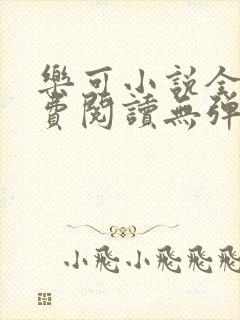 樂可小說全
費閱讀無彈
小飛小飛飛飛